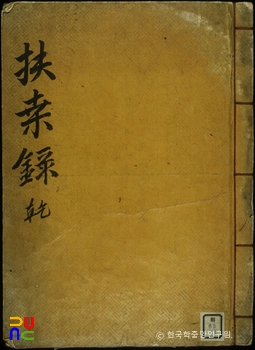 扶桑錄
乾
© 한국학중앙연구원